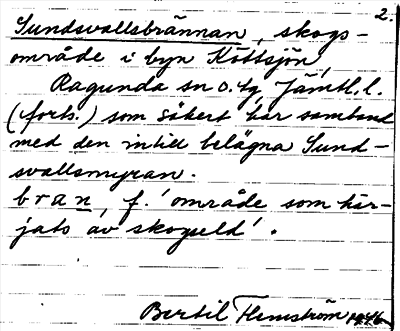 2.
Sundsvallsbrännan, skogs-
område i byn Köttsjön,
Ragunda sn o. tg Jämtl. l.
(forts.) som säkert har samband
med den intill belägna Sund-
svallsmyran.
bran, f. 'område som här-
jats av skogseld'.
Bertil Flemström 1946